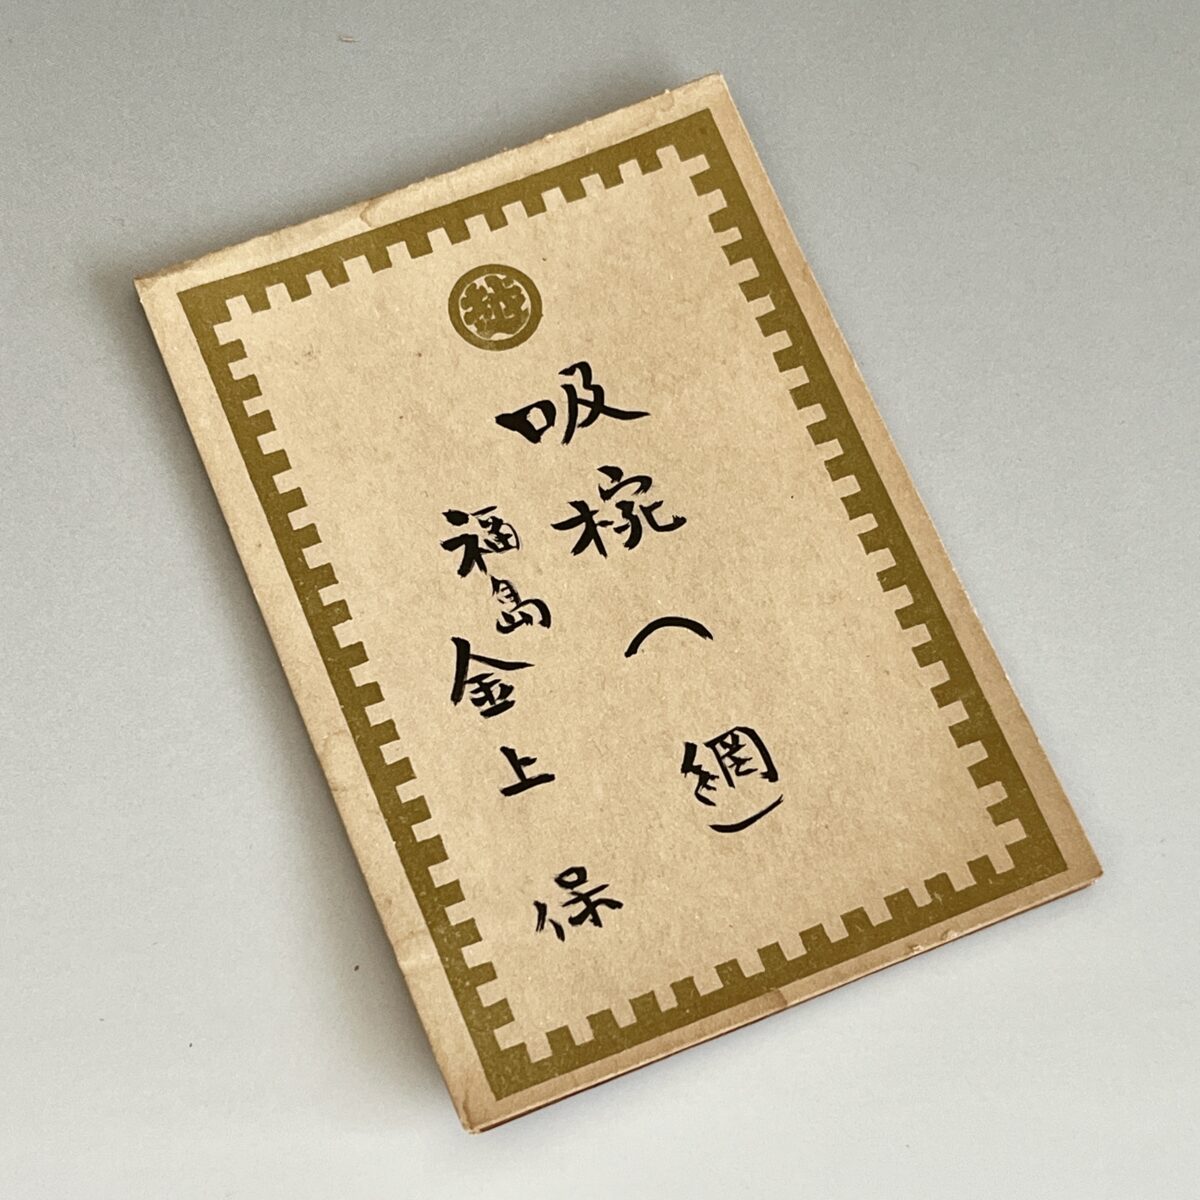 越
吸椀(網)
福島金上保